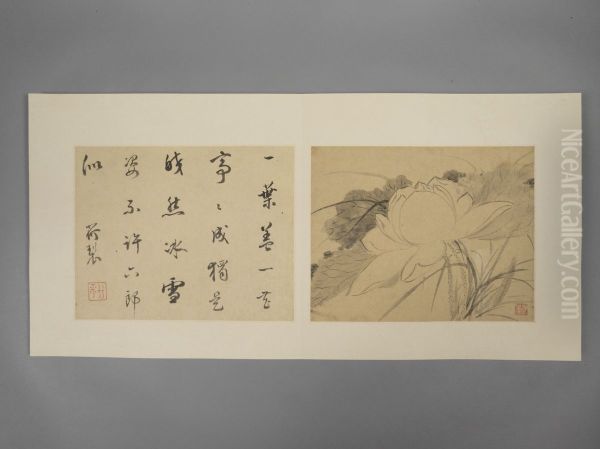 一葉蓋一花
亭〻成獨是
皎然冰雪
姿不許六郎
似
NiceArtGallery.com